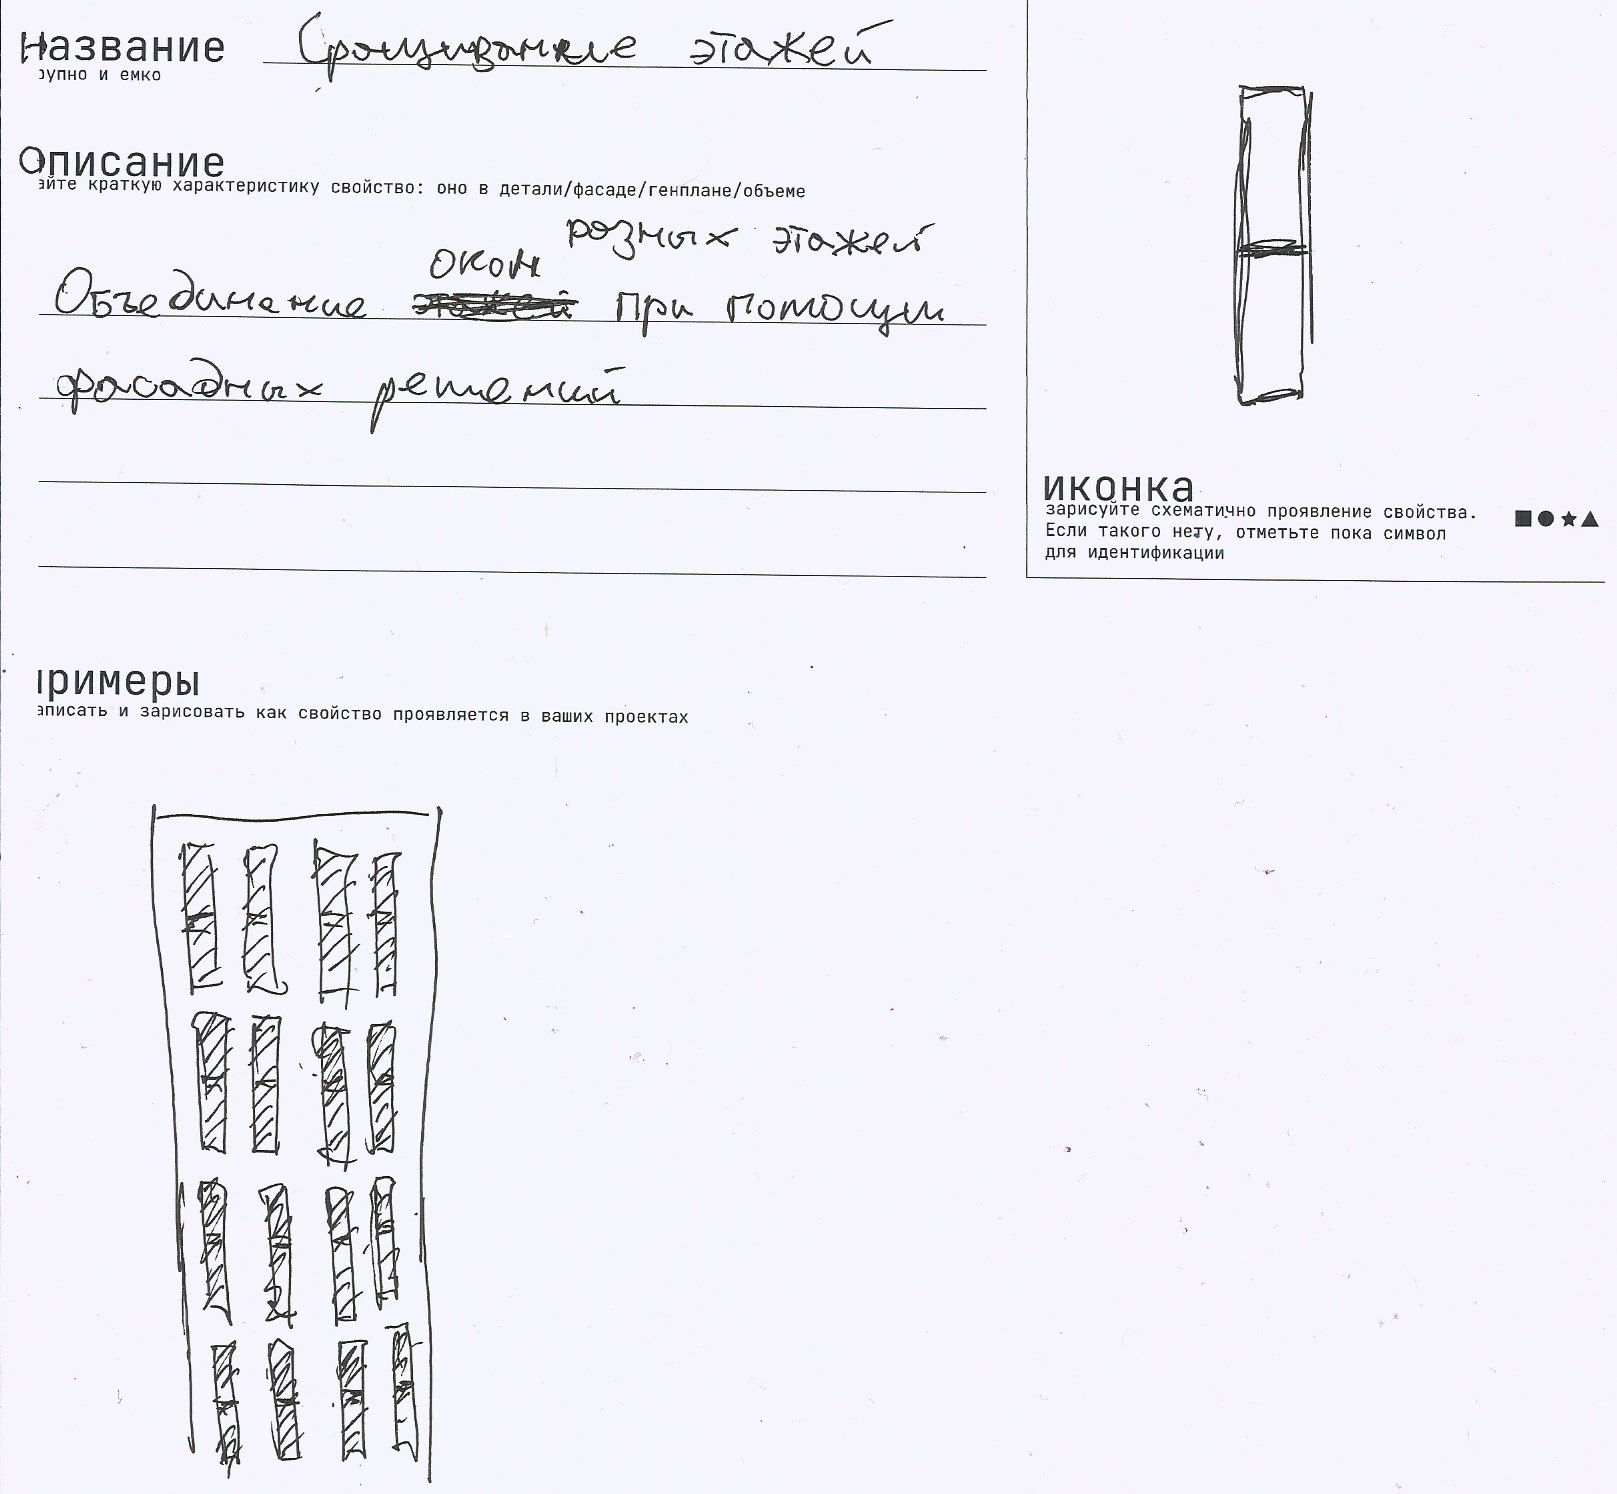 Название
Сращивание этажей
рупно и емко
Описание
айте краткую характеристику свойство: оно в детали/фасаде/генплане/объеме
разных этажей
окон
Объединение этажей при помощи
фасадных решений
иконка
зарисуйте схематично проявление свойства.
Если такого нету, отметьте пока символ
для идентификации
примеры
аписать и зарисовать как свойство проявляется в ваших проектах